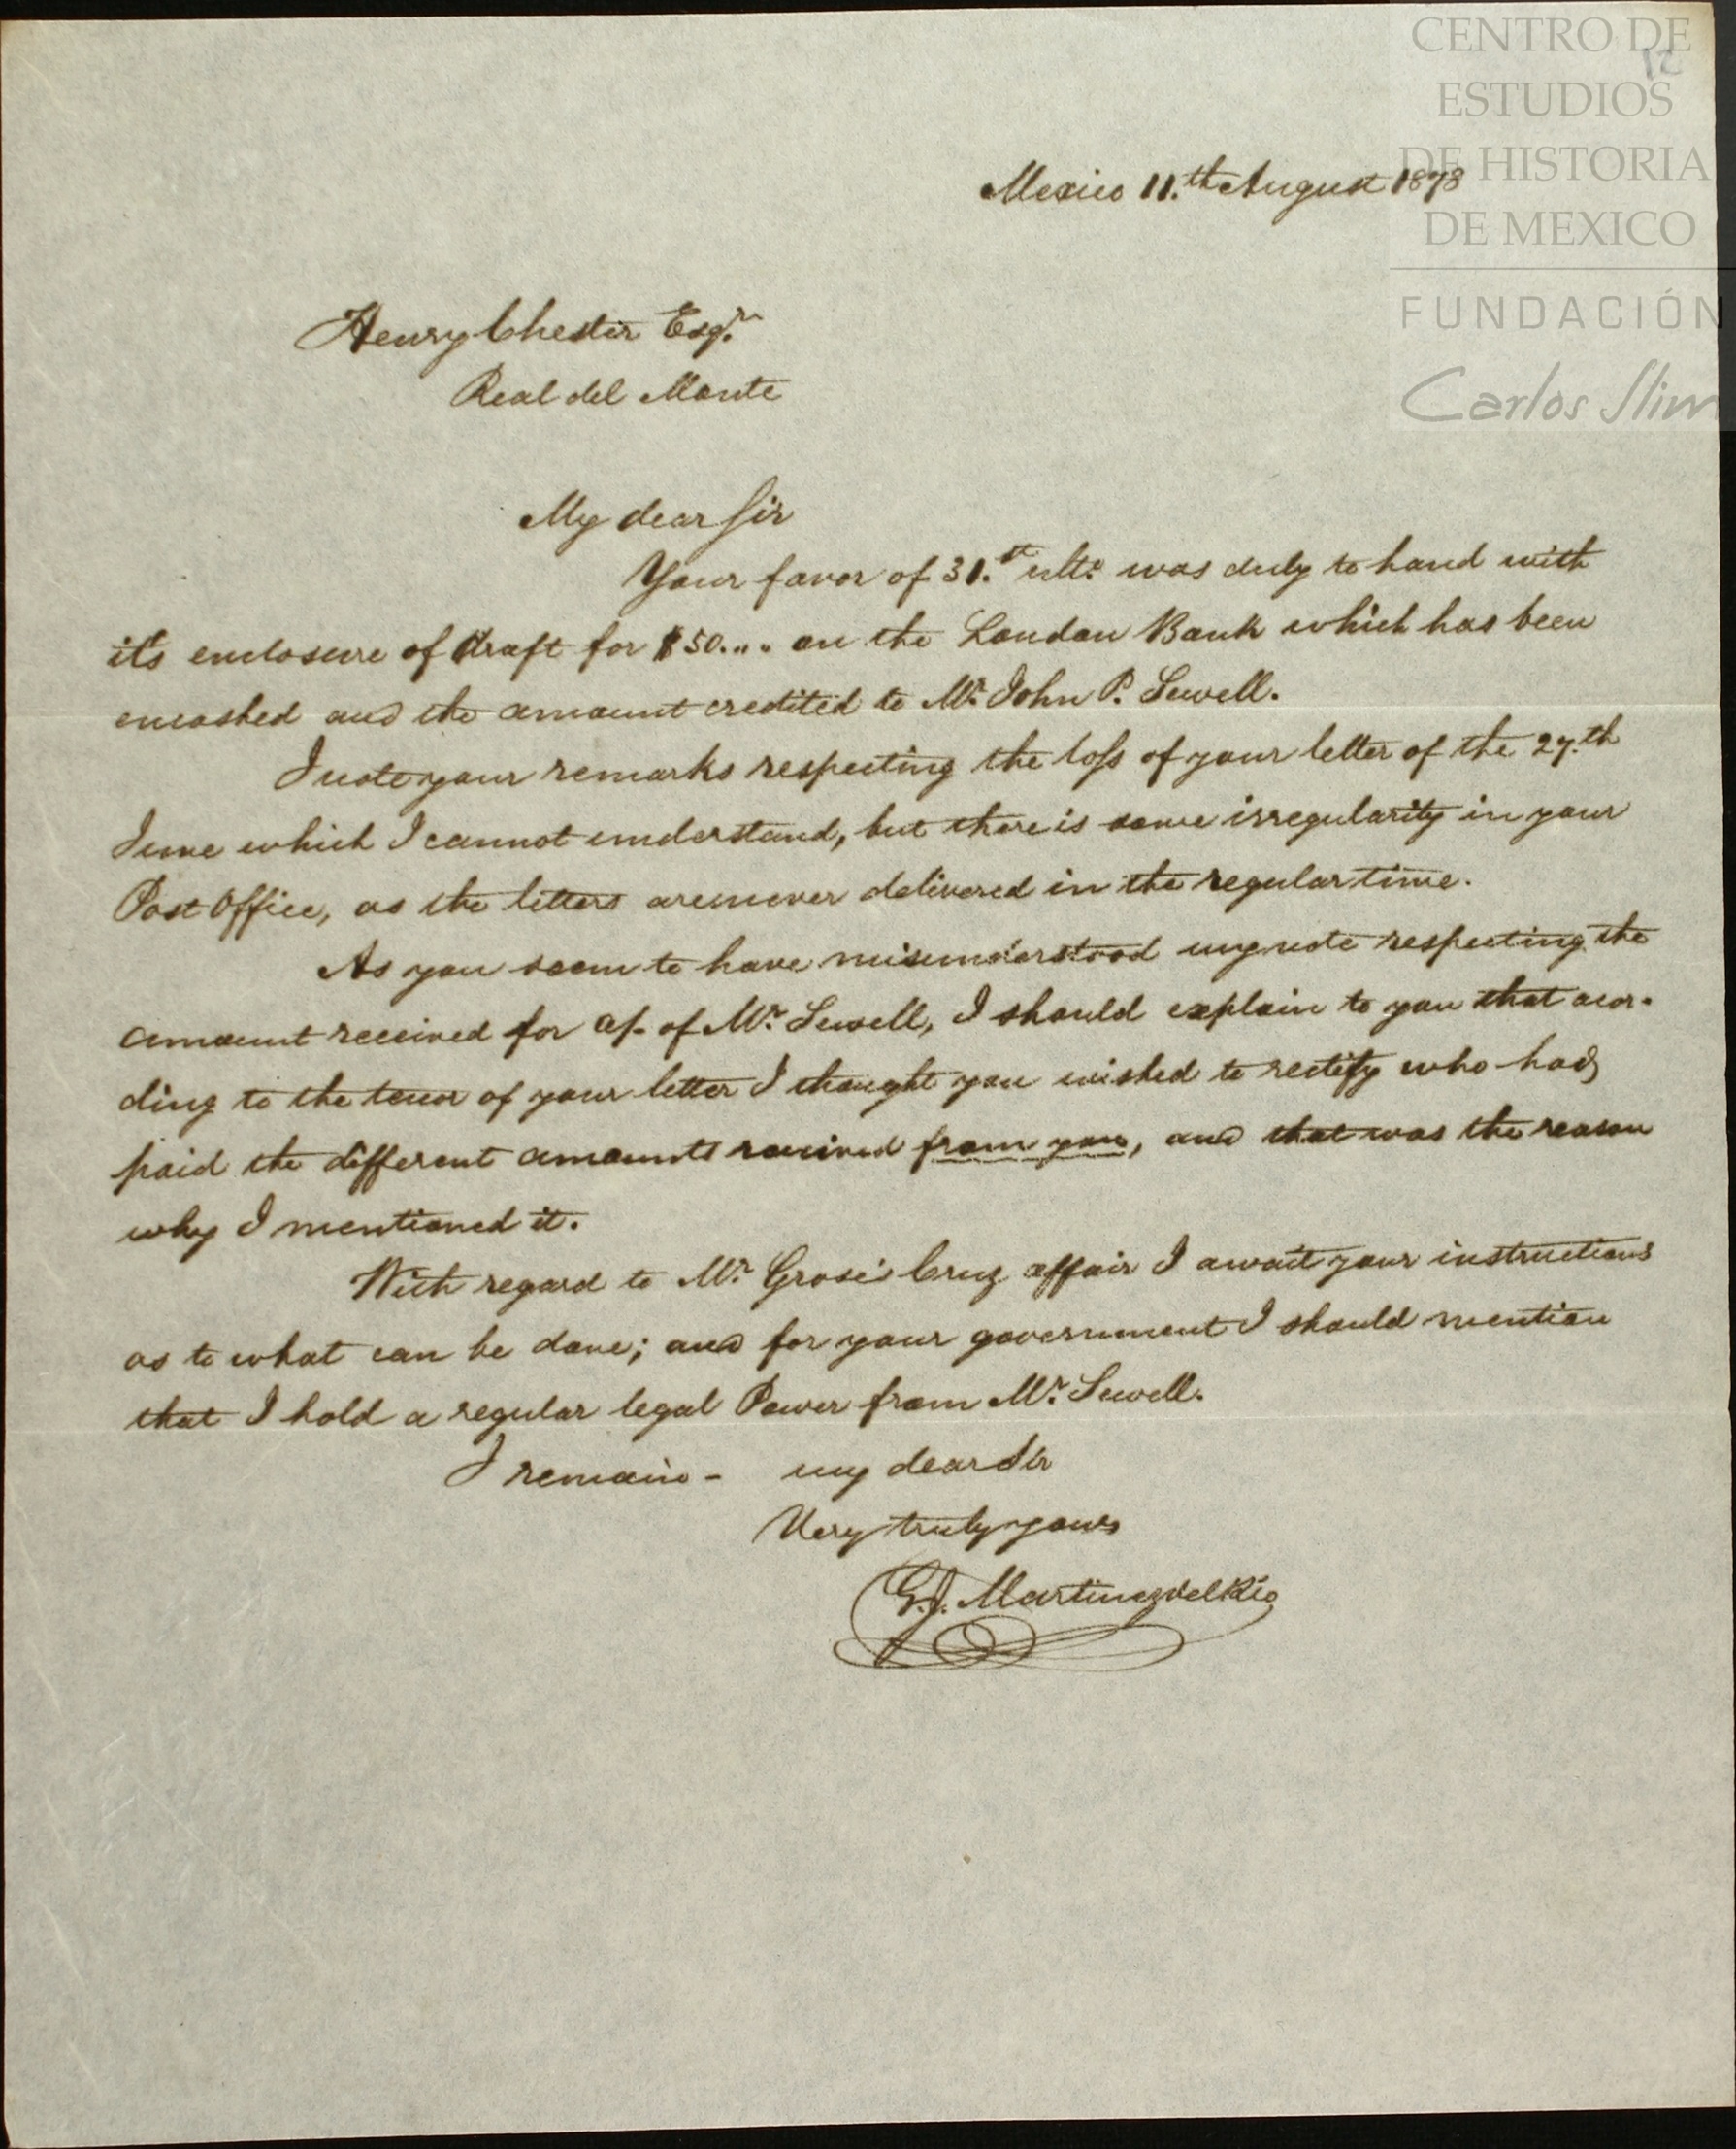 CENTRO DE
ESTUDIOS
DE HISTORIA
DE MEXICO
FUNDACIÓN
Carlos Slim
12
Mexico 11.th August 1878
Henry Chester Esqr.
Real del Monte
My dear Sir
Your favor of 31.st ulto. was duly to hand with
its enclosure of draft for $50... on the London Bank which has been
encashed and the amount credited to Mr. John P. Sewell.
I note your remarks respecting the loss of your letter of the 27.th
June which I cannot understand, but there is some irregularity in your
Post Office, as the letters are never delivered in the regular time.
As you seem to have misunderstood my note respecting the
amount received for a/. of Mr. Sewell, I should explain to you that acor-
ding to the tenor of your letter I thought you wished to rectify who had
paid the different amounts received from you, and that was the reason
why I mentioned it.
With regard to Mr. Grose's Cruz affair I await your instructions
as to what can be done; and for your government I should mention
that I hold a regular legal Power from Mr. Sewell.
I remain - my dear Sir
Very truly yours
G. J. Martinez del Rio